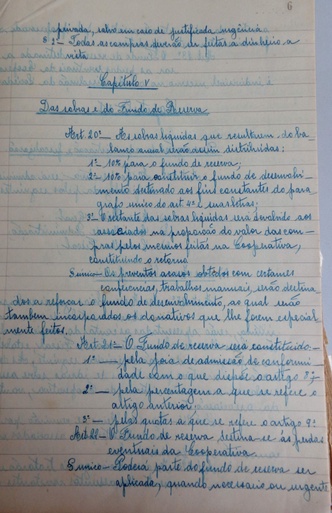 6
privada, salvo em caso de justificada urgência
§ 2º — Todas as compras deverão ser feitas a dinheiro, a
vista
Capítulo V
Das sobras e do Fundo de Reserva
Art. 20º — As sobras liquidas que resultarem do ba
lanço anual serão assim distribuidas:
1º — 10% para o fundo de reserva;
2º — 10% para constituir o fundo de desenvolvi-
mento destinado aos fins constantes do para
grafo unico do art. 4º e suas letras;
3º — O restante das sobras liquidas será devolvido aos
associados na proporção do valor das com
pras pelos mesmos feitas na Cooperativa,
constituindo o retorno
§ unico — Os proventos acaso obtidos com certames
conferencias, trabalhos manuais, serão destina
dos a reforçar o fundo de desenvolvimento, ao qual serão
tambem incorporados os donativos que lhe forem especial
mente feitos.
Art. 21º — O Fundo de reserva será constituido:—
1º — pela joia de admissão de conformi
dade com o que dispõe o artigo
2º — pela percentagem a que se refere o
artigo anterior
3º — pelas quotas a que se refere o artigo 9º
Art. 22 — O Fundo de reserva destina-se ás perdas
eventuais da Cooperativa
§ unico — Poderá parte do fundo de reserva ser
aplicada, quando necessario ou urgente